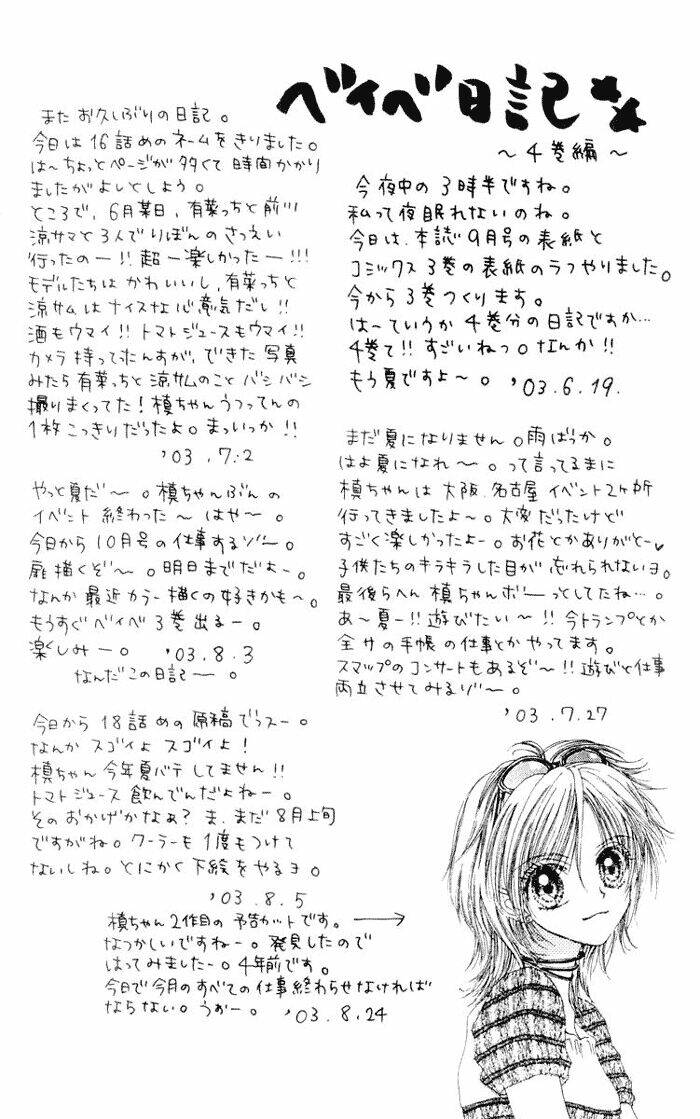 ベイベ日記
～4巻編～
今夜中の3時半ですね。
私って夜眠れないのね。
今日は、本誌9月号の表紙と
コミックス3巻の表紙のラフやりました。
今から3巻つくります。
は〜ていうか4巻分の日記ですか…
4巻て!!すごいねっ。なんか!!
もう夏ですよ〜。'03.6.19.
また お久しぶりの日記。
今日は16話めのネームをきりました。
は〜ちょっとページが多くて時間かかり
ましたがよしとしよう。
ところで、6月某日、有菜っちと前川
涼サマと3人でりぼんのさつえい
行ったのー!!超ー楽しかったー!!!
モデルたちはかわいいし、有菜っちと
涼サムはナイスな心意気だし!!
酒もウマイ!!トマトジュースもウマイ!!
カメラ持って来たんすが、できた写真
みたら有菜っちと涼サムのことバシバシ
撮りまくってた!槙ちゃんうつってんの
1枚こっきりだったよ。まっいっか!!
'03.7.2
まだ夏になりません。雨ばっか。
はよ夏になれ〜。って言ってるまに
槙ちゃんは大阪、名古屋イベント2ヶ所
行ってきましたよ〜。大変だったけど
すごく楽しかったよー。お花とかありがとー♥
子供たちのキラキラした目が忘れられないヨ。
最後らへん槙ちゃんボーっとしてたね…。
あ〜夏ー!!遊びたい〜!!今トランプとか
全サの手帳の仕事とかやってます。
スマップのコンサートもあるぞ〜!!遊びと仕事
両立させてみるゾ〜。
'03.7.27
やっと夏だ〜。槙ちゃんぶんの
イベント終わった〜はや〜。
今日から10月号の仕事するゾ〜。
扉描くぞ〜。明日までだよー。
なんか最近カラー描くの好きかも〜。
もうすぐベイベ3巻出るー。
楽しみー。'03.8.3
なんだこの日記ー。
今日から18話めの原稿でっスー。
なんかスゴイよスゴイよ!
槙ちゃん今年夏バテしてません!!
トマトジュース飲んでんだよねー。
そのおかげかなぁ?ま、まだ8月上旬
ですがね。クーラーも1度もつけて
ないしね。とにかく下絵をやるヨ。
'03.8.5
槙ちゃん2作目の予告カットです。→
なつかしいですねー。発見したので
はってみましたー。4年前です。
今日で今月のすべての仕事終わらせなければ
ならない。うぉー。'03.8.24